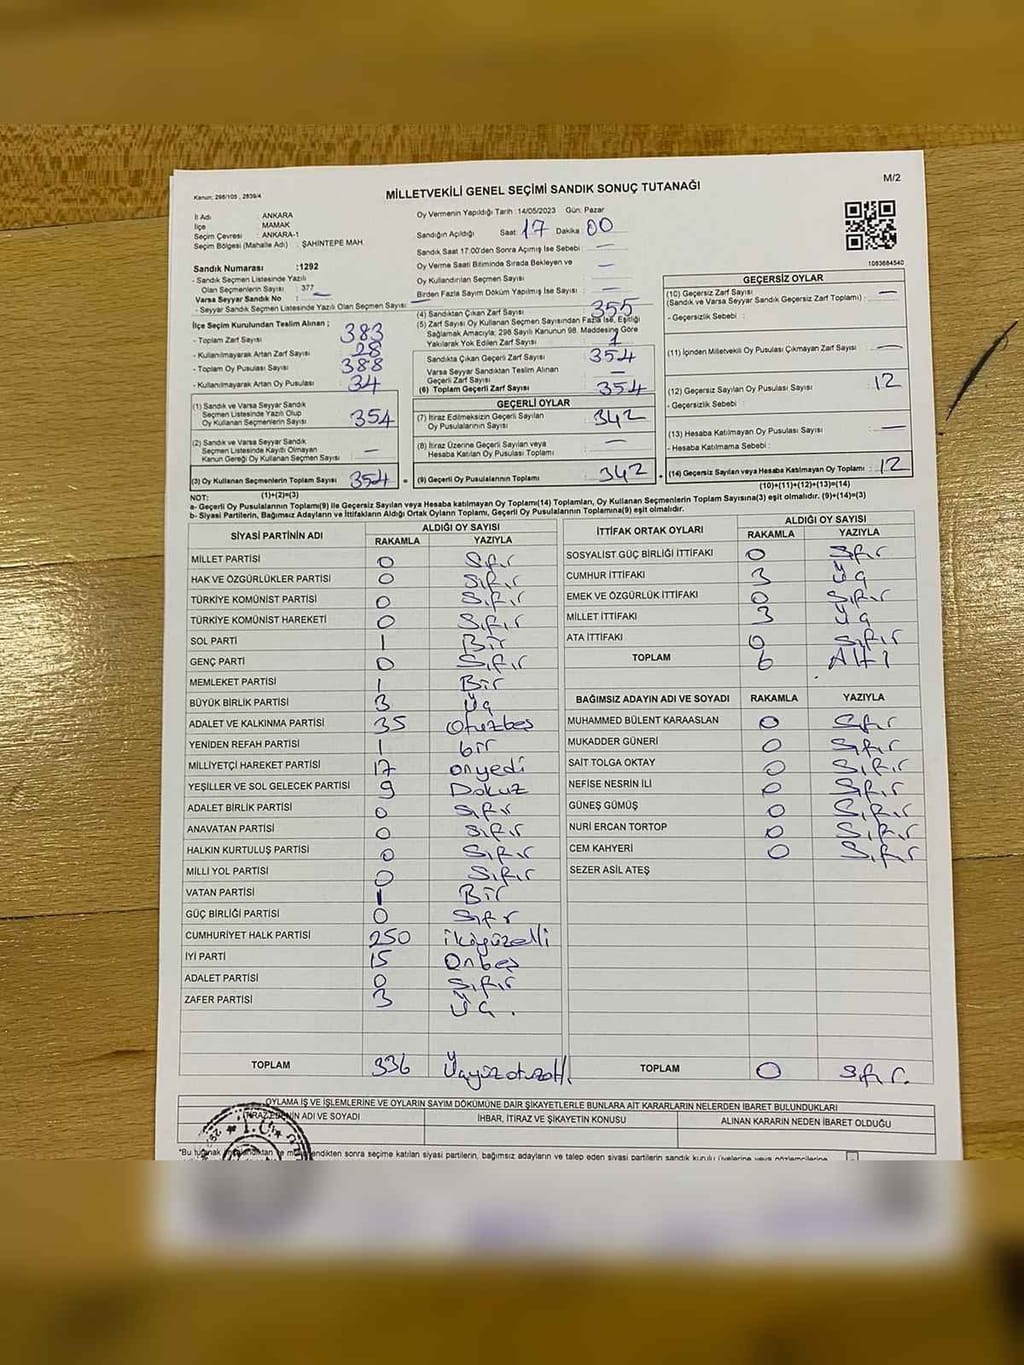 M/2
Kanun: 298/105 , 2839/4
MİLLETVEKİLİ GENEL SEÇİMİ SANDIK SONUÇ TUTANAĞI
İl Adı : ANKARA
İlçe : MAMAK
Seçim Çevresi : ANKARA-1
Seçim Bölgesi (Mahalle Adı) : ŞAHİNTEPE MAH.
Sandık Numarası :1292
- Sandık Seçmen Listesinde Yazılı
Olan Seçmenlerin Sayısı : 377
Varsa Seyyar Sandık No : —
- Seyyar Sandık Seçmen Listesinde Yazılı Olan Seçmen Sayısı: —
İlçe Seçim Kurulundan Teslim Alınan ;
- Toplam Zarf Sayısı : 383
- Kullanılmayarak Artan Zarf Sayısı : 28
- Toplam Oy Pusulası Sayısı : 388
- Kullanılmayarak Artan Oy Pusulası : 34
(1) Sandık ve Varsa Seyyar Sandık
Seçmen Listesinde Yazılı Olup
Oy Kullanan Seçmenlerin Sayısı : 354
(2) Sandık ve Varsa Seyyar Sandık
Seçmen Listesinde Kaydı Olmayan
Kanun Gereği Oy Kullanan Seçmen Sayısı : —
(3) Oy Kullanan Seçmenlerin Toplam Sayısı : 354
(1)+(2)=(3)
Oy Vermenin Yapıldığı Tarih :14/05/2023 Gün: Pazar
Sandığın Açıldığı Saat: 17 Dakika 00
Sandık Saat 17:00'den Sonra Açılmış İse Sebebi : —
Oy Verme Saati Bitiminde Sırada Bekleyen ve
Oy Kullandırılan Seçmen Sayısı : —
Birden Fazla Sayım Döküm Yapılmış İse Sayısı : —
(4) Sandıktan Çıkan Zarf Sayısı : 355
(5) Zarf Sayısı Oy Kullanan Seçmen Sayısından Fazla İse, Eşitliği
Sağlamak Amacıyla; 298 Sayılı Kanunun 98. Maddesine Göre
Yakılarak Yok Edilen Zarf Sayısı : 1
Sandıkta Çıkan Geçerli Zarf Sayısı : 354
Varsa Seyyar Sandıktan Teslim Alınan
Geçerli Zarf Sayısı : —
(6) Toplam Geçerli Zarf Sayısı : 354
GEÇERLİ OYLAR
(7) İtiraz Edilmeksizin Geçerli Sayılan
Oy Pusulalarının Sayısı : 342
(8) İtiraz Üzerine Geçerli Sayılan veya
Hesaba Katılan Oy Pusulası Toplamı : —
(9) Geçerli Oy Pusulalarının Toplamı : 342
1083684540
GEÇERSİZ OYLAR
(10) Geçersiz Zarf Sayısı : —
(Sandık ve Varsa Seyyar Sandık Geçersiz Zarf Toplamı) :
- Geçersizlik Sebebi :
(11) İçinden Milletvekili Oy Pusulası Çıkmayan Zarf Sayısı : —
(12) Geçersiz Sayılan Oy Pusulası Sayısı : 12
- Geçersizlik Sebebi :
(13) Hesaba Katılmayan Oy Pusulası Sayısı : —
- Hesaba Katılmama Sebebi :
(14) Geçersiz Sayılan veya Hesaba Katılmayan Oy Toplamı : 12
(10)+(11)+(12)+(13)=(14)
NOT:
a- Geçerli Oy Pusulalarının Toplamı(9) ile Geçersiz Sayılan veya Hesaba katılmayan Oy Toplamı(14) Toplamları, Oy Kullanan Seçmenlerin Toplam Sayısına(3) eşit olmalıdır. (9)+(14)=(3)
b- Siyasi Partilerin, Bağımsız Adayların ve İttifakların Aldığı Ortak Oyların Toplamı, Geçerli Oy Pusulalarının Toplamına(9) eşit olmalıdır.
SİYASİ PARTİNİN ADI ALDIĞI OY SAYISI
RAKAMLA YAZIYLA
MİLLET PARTİSİ 0 Sıfır
HAK VE ÖZGÜRLÜKLER PARTİSİ 0 Sıfır
TÜRKİYE KOMÜNİST PARTİSİ 0 Sıfır
TÜRKİYE KOMÜNİST HAREKETİ 0 Sıfır
SOL PARTİ 1 Bir
GENÇ PARTİ 0 Sıfır
MEMLEKET PARTİSİ 1 Bir
BÜYÜK BİRLİK PARTİSİ 3 Üç
ADALET VE KALKINMA PARTİSİ 35 Otuzbeş
YENİDEN REFAH PARTİSİ 1 bir
MİLLİYETÇİ HAREKET PARTİSİ 17 onyedi
YEŞİLLER VE SOL GELECEK PARTİSİ 9 Dokuz
ADALET BİRLİK PARTİSİ 0 Sıfır
ANAVATAN PARTİSİ 0 Sıfır
HALKIN KURTULUŞ PARTİSİ 0 Sıfır
MİLLİ YOL PARTİSİ 0 Sıfır
VATAN PARTİSİ 1 Bir
GÜÇ BİRLİĞİ PARTİSİ 0 Sıfır
CUMHURİYET HALK PARTİSİ 250 ikiyüzelli
İYİ PARTİ 15 Onbeş
ADALET PARTİSİ 0 Sıfır
ZAFER PARTİSİ 3 Üç.
TOPLAM 336
İTTİFAK ORTAK OYLARI ALDIĞI OY SAYISI
RAKAMLA YAZIYLA
SOSYALİST GÜÇ BİRLİĞİ İTTİFAKI 0 Sıfır
CUMHUR İTTİFAKI 3 Üç
EMEK VE ÖZGÜRLÜK İTTİFAKI 0 Sıfır
MİLLET İTTİFAKI 3 Üç
ATA İTTİFAKI 0 Sıfır
TOPLAM 6 Altı
BAĞIMSIZ ADAYIN ADI VE SOYADI RAKAMLA YAZIYLA
MUHAMMED BÜLENT KARAASLAN 0 Sıfır
MUKADDER GÜNERİ 0 Sıfır
SAİT TOLGA OKTAY 0 Sıfır
NEFİSE NESRİN İLİ 0 Sıfır
GÜNEŞ GÜMÜŞ 0 Sıfır
NURİ ERCAN TORTOP 0 Sıfır
CEM KAHYERİ 0 Sıfır
SEZER ASİL ATEŞ
TOPLAM 0 Sıfır.
OYLAMA İŞ VE İŞLEMLERİNE VE OYLARIN SAYIM DÖKÜMÜNE DAİR ŞİKAYETLERLE BUNLARA AİT KARARLARIN NELERDEN İBARET BULUNDUKLARI
İTİRAZ EDENİN ADI VE SOYADI İHBAR, İTİRAZ VE ŞİKAYETİN KONUSU ALINAN KARARIN NEDEN İBARET OLDUĞU
T.C.
sonra seçime katılan siyasi partilerin, bağımsız adayların ve talep eden siyasi partilerin sandık kurulu